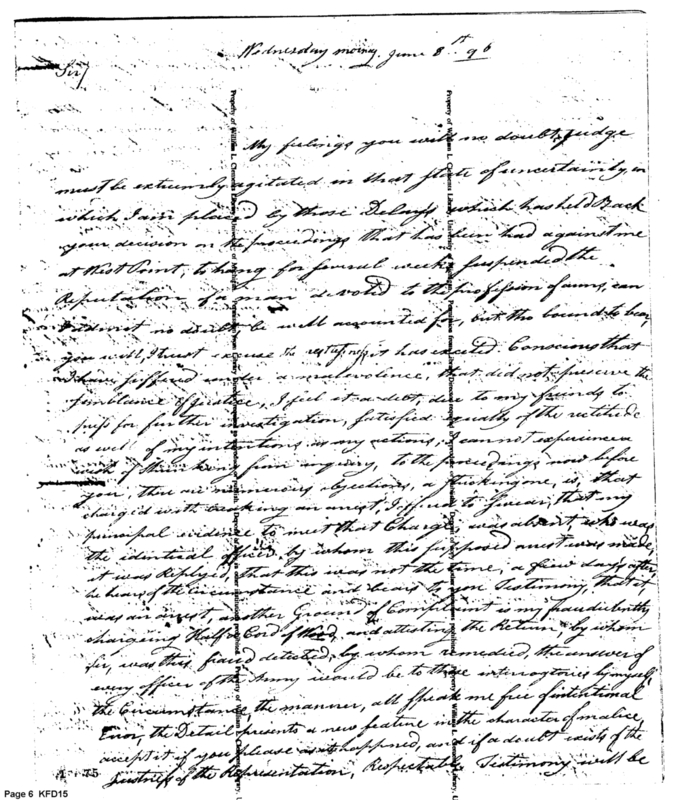 Wednesday morng. June 8th 96
Sir/
My feelings you will no doubt judge
must be extremely agitated in that state of uncertainty, in
which I am placed by those Delays which has held Back
your decision on the proceedings that has been had against me
at West Point, to hang for several weeks suspended the
Reputation of a man devoted to the profession of arms, can
no doubt be well accounted for, but tho bound to bear,
you will, I trust excuse the it has excited. Conscious that
I have suffered under a malevolence, that did not preserve the
semblance of justice, I feel it a debt, due to my friends to
press for further investigation, satisfied equally of the rectitude
as well of my intentions as my actions, I cannot experience a
wish of shrinking from inquiry, to the proceedings now before
you, there are numerous objections, a striking one, is, that
charged with breaking an arrest, I offered to swear, that my
principal evidence to meet that Charge, was absent, who was
the identical officer by whom this supposed arrest was made,
it was Replyed, that this was not the time, a few days after
he hears of the Circumstance and bears to you Testimony, that it
was an arrest, another Ground of Complaint is my fraudulently
charging Half a Cord of Wood, and attesting the Return, by whom
Sir, was this fraud detected, by whom remedied, the answer of
every officer of the Army would be to these interrogtories by myself,
the Circumstance, the manner, all speak me free of intentional
Error, the Detail presents a new feature in the character of malice,
accept it if you please as it happened, and if a doubt exists of the
Justness of the Representation, Respectable Testimony will be
75
Page 6 KFD15